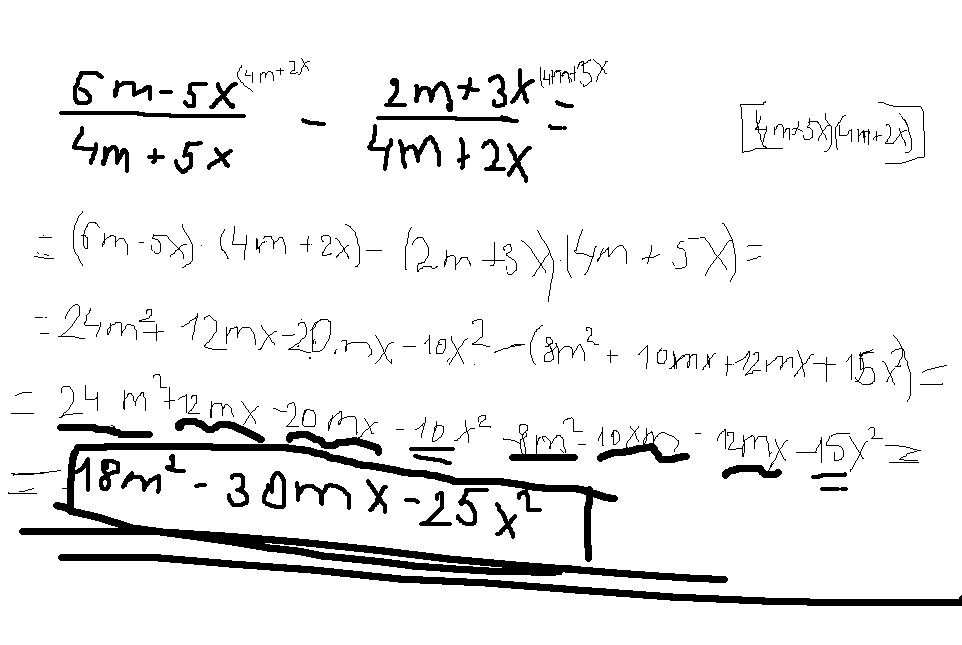 6m-5x (4m+2x - 2m+3x (4m+5x =
4m+5x 4m+2x [(4m+5x)(4m+2x)]
= (6m-5x)·(4m+2x)-(2m+3x)·(4m+5x)=
=24m²+12mx-20mx-10x²-(8m²+10mx+12mx+15x²)=
=24m²+12mx-20mx-10x²-8m²-10xm-12mx-15x²=
=18m²-30mx-25x²